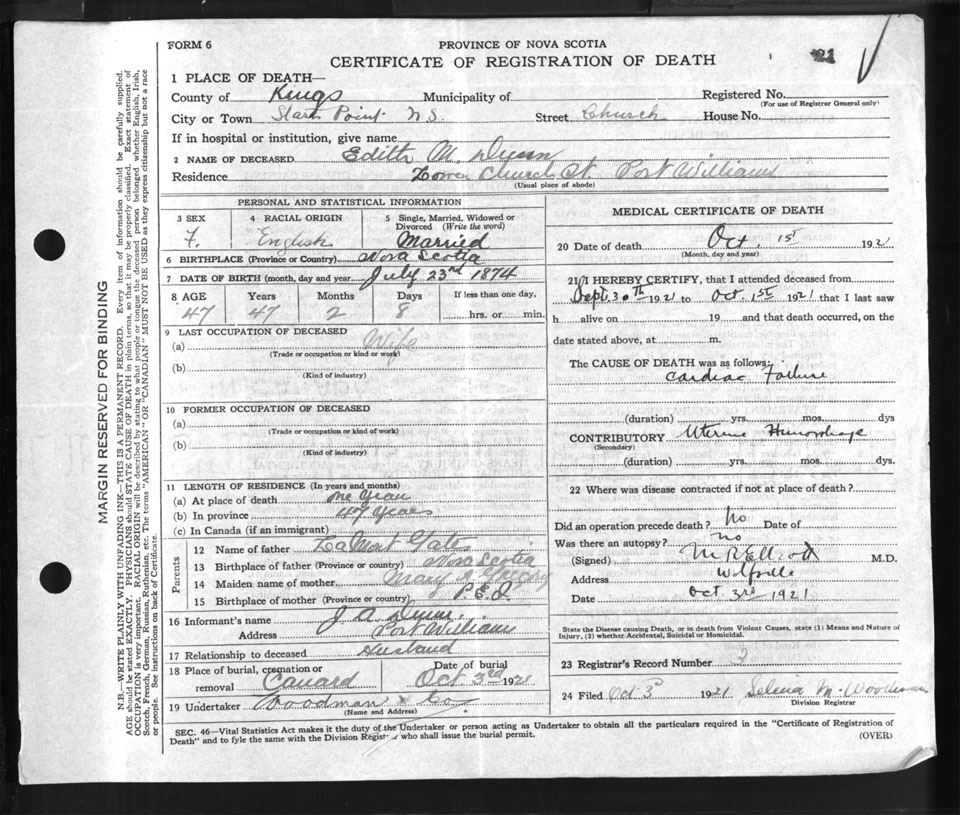 FORM 6
PROVINCE OF NOVA SCOTIA
CERTIFICATE OF REGISTRATION OF DEATH
21
1 PLACE OF DEATH—
County of Kings Municipality of Registered No.
(For use of Registrar General only)
City or Town Starr Point N.S. Street Church House No.
If in hospital or institution, give name
2 NAME OF DECEASED Edith M. Dunn
Residence Lower Church St. Port Williams
(Usual place of abode)
PERSONAL AND STATISTICAL INFORMATION
3 SEX 4 RACIAL ORIGIN 5 Single, Married, Widowed or Divorced (Write the word)
F. English Married
6 BIRTHPLACE (Province or Country) Nova Scotia
7 DATE OF BIRTH (month, day and year) July 23rd 1874
8 AGE Years Months Days If less than one day,
47 47 2 8 hrs. or min.
9 LAST OCCUPATION OF DECEASED
(a) Wife
(Trade or occupation or kind or work)
(b)
(Kind of industry)
10 FORMER OCCUPATION OF DECEASED
(a)
(Trade or occupation or kind of work)
(b)
(Kind of industry)
11 LENGTH OF RESIDENCE (In years and months)
(a) At place of death one year
(b) In province 47 years
(c) In Canada (if an immigrant)
Parents
12 Name of father LaMont
13 Birthplace of father (Province or country) Nova Scotia
14 Maiden name of mother Mary
15 Birthplace of mother (Province or country) P.E.I.
16 Informant's name J. A. Dunn
Address Port Williams
17 Relationship to deceased Husband
18 Place of burial, cremation or removal Canard Date of burial Oct 3rd 1921
19 Undertaker Woodman & Co
(Name and Address)
MEDICAL CERTIFICATE OF DEATH
20 Date of death Oct. 1st 1921
(Month, day and year)
21 I HEREBY CERTIFY, that I attended deceased from
Sept. 30th 1921 to Oct. 1st 1921 that I last saw
h alive on 19 and that death occurred, on the
date stated above, at m.
The CAUSE OF DEATH was as follows:
Cardiac Failure
(duration) yrs. mos. dys
CONTRIBUTORY Uterine Hemorrhage
(Secondary)
(duration) yrs. mos. dys.
22 Where was disease contracted if not at place of death?
Did an operation precede death? No Date of
Was there an autopsy? No
(Signed) M. R. Elliott M.D.
Address Wolfville
Date Oct 3rd 1921
State the Disease causing Death, or in death from Violent Causes, state (1) Means and Nature of Injury, (2) whether Accidental, Suicidal or Homicidal.
23 Registrar's Record Number 3
24 Filed Oct 3 1921 Selena M. Woodman
Division Registrar
SEC. 46—Vital Statistics Act makes it the duty of the Undertaker or person acting as Undertaker to obtain all the particulars required in the "Certificate of Registration of
Death" and to fyle the same with the Division Registrar who shall issue the burial permit.
(OVER)
MARGIN RESERVED FOR BINDING
N.B.—WRITE PLAINLY WITH UNFADING INK—THIS IS A PERMANENT RECORD. Every item of information should be carefully supplied.
AGE should be stated EXACTLY. PHYSICIANS should STATE CAUSE OF DEATH in plain terms, so that it may be properly classified. Exact statement of
OCCUPATION is very important. RACIAL ORIGIN will be described by stating to what people or tongue the deceased person belonged whether English, Irish,
Scotch, French, German, Russian, Ruthenian, etc. The terms "AMERICAN" OR "CANADIAN" MUST NOT BE USED as they express citizenship but not a race
or people. See instructions on back of Certificate.